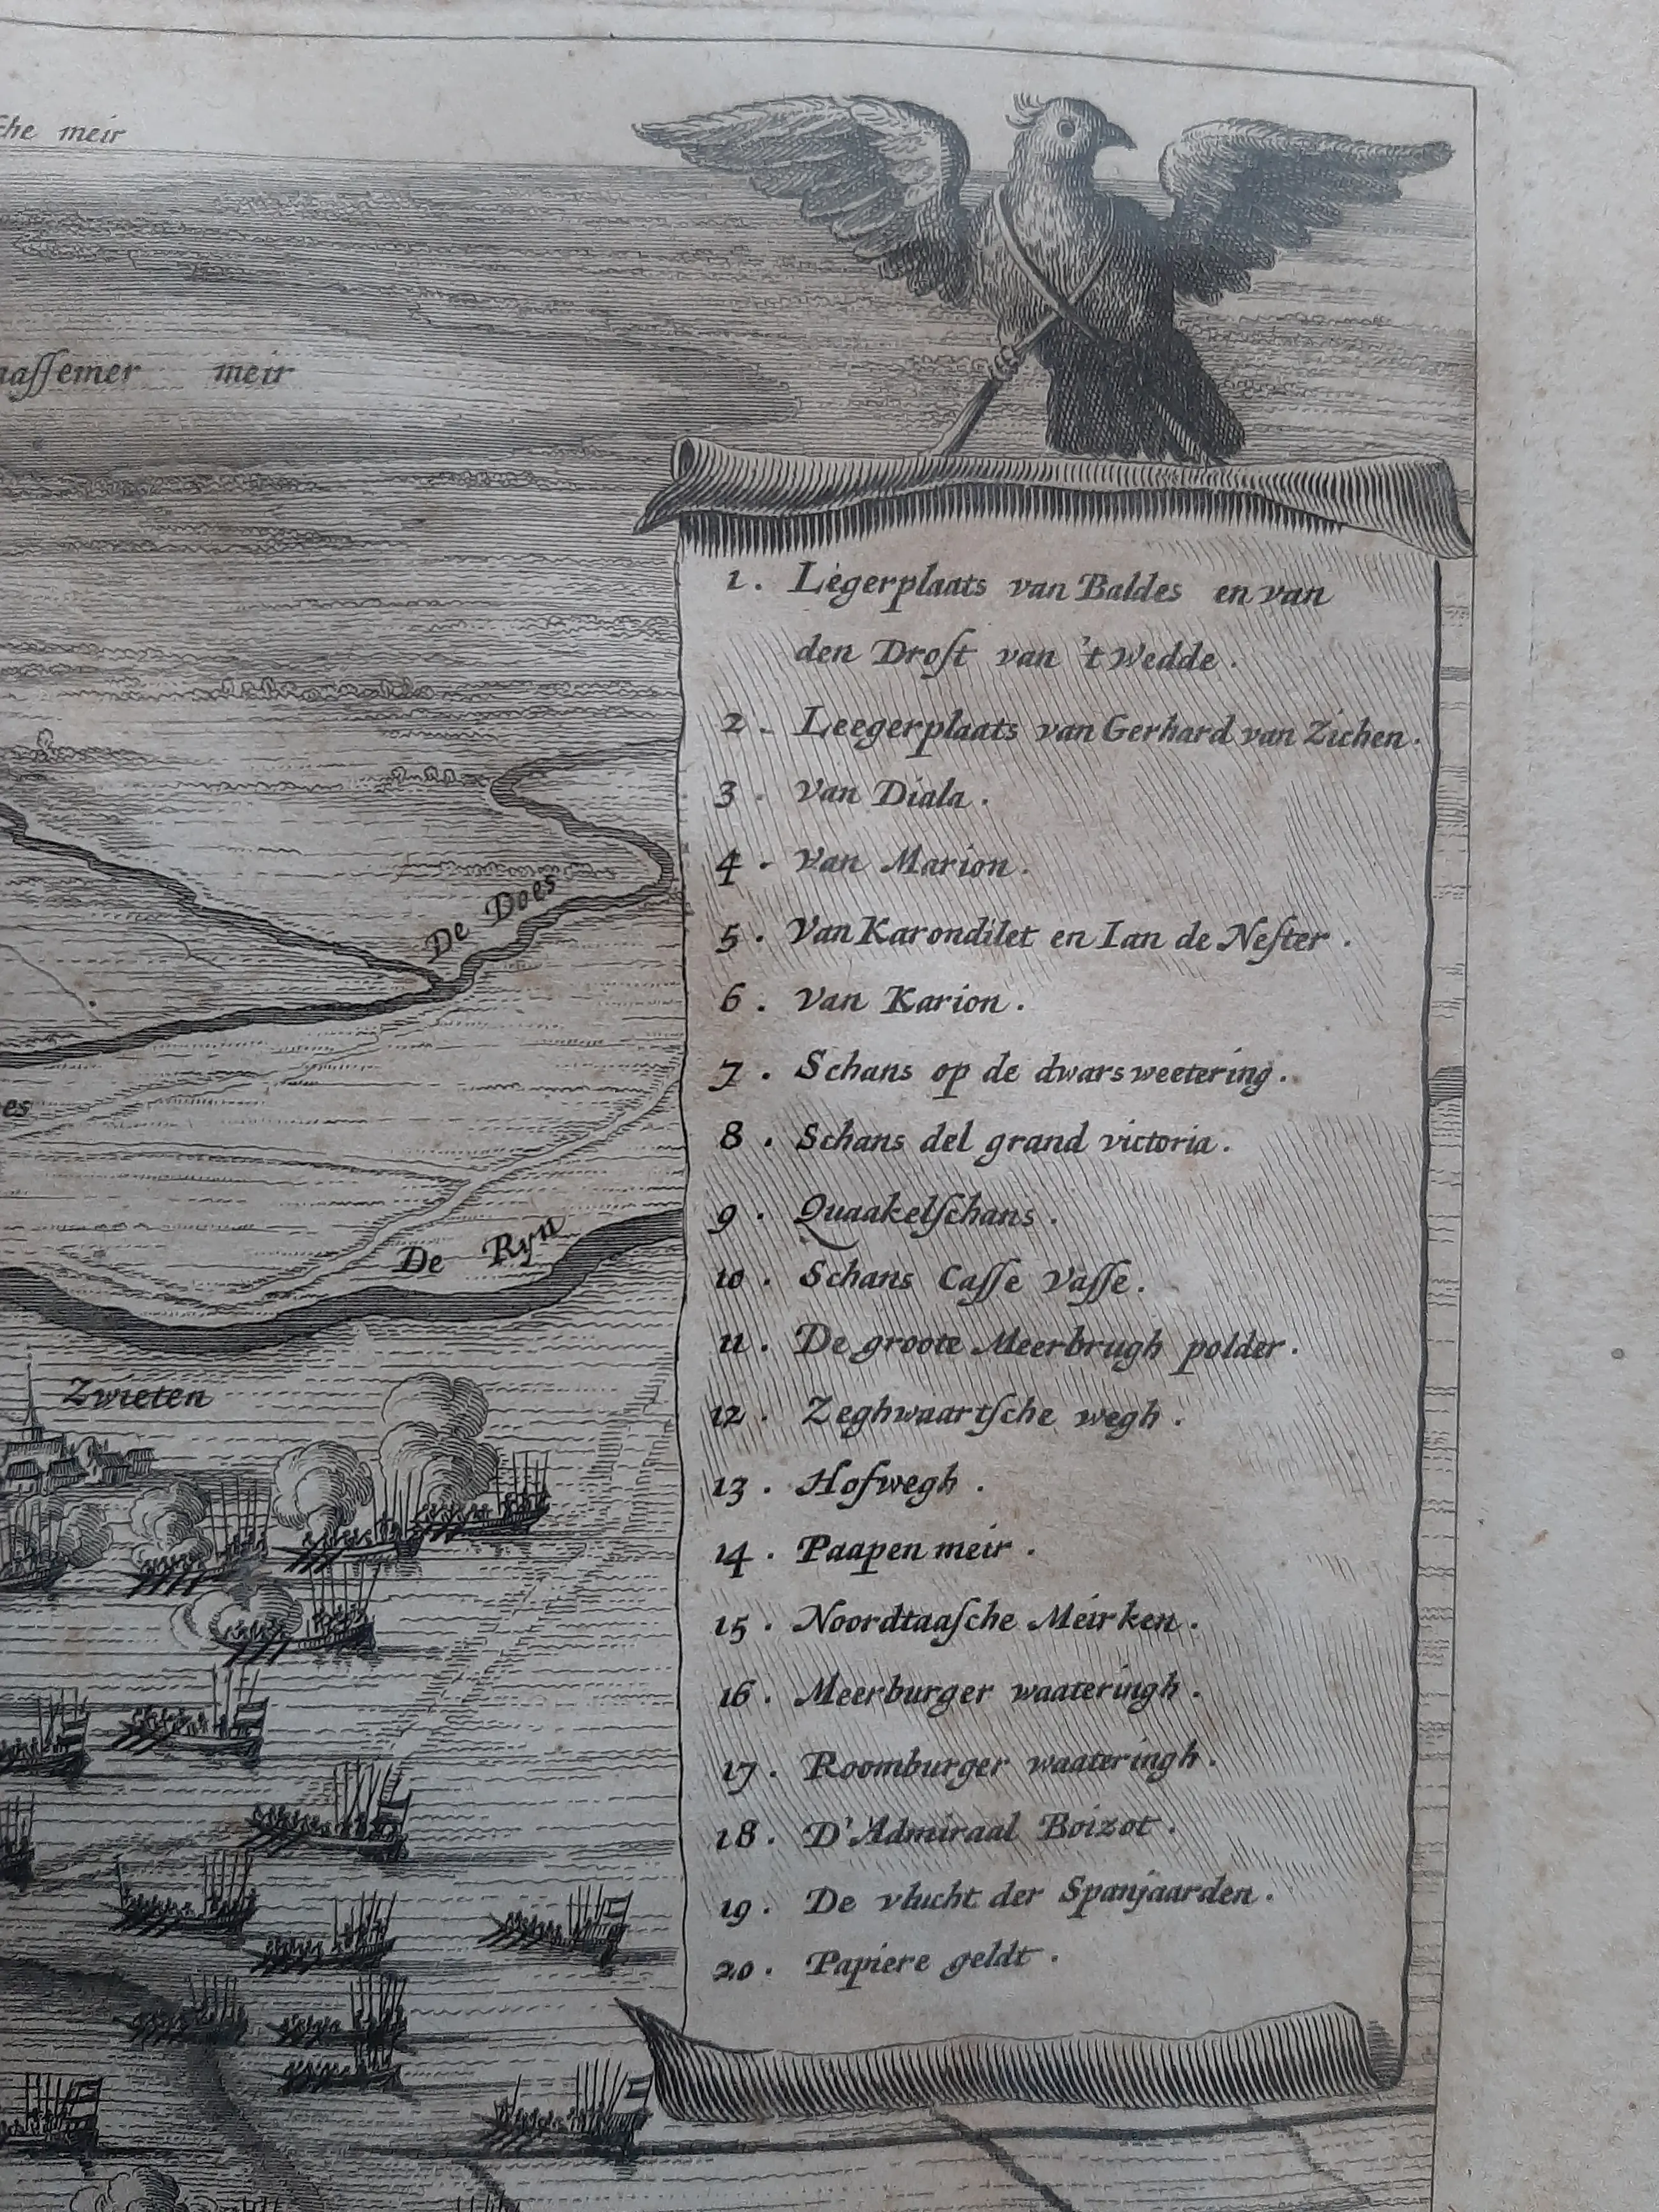 che meir
aſſemer meir
De Does
es
De Ryn
Zwieten
1. Legerplaats van Baldes en van
den Droſt van 't Wedde.
2. Leegerplaats van Gerhard van Zichen.
3. Van Diala.
4. Van Marion.
5. Van Karondilet en Ian de Neſter.
6. Van Karion.
7. Schans op de dwars weetering.
8. Schans del grand victoria.
9. Quaakelſchans.
10. Schans Caſſe Vaſſe.
11. De groote Meerbrugh polder.
12. Zeghwaartſche wegh.
13. Hofwegh.
14. Paapen meir.
15. Noordtaaſche Meirken.
16. Meerburger waateringh.
17. Roomburger waateringh.
18. D'Admiraal Boizot.
19. De vlucht der Spanjaarden.
20. Papiere geldt.